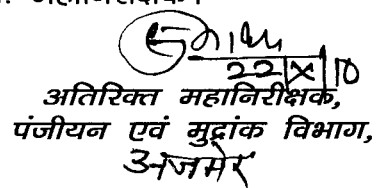 22/X/10
अतिरिक्त महानिरीक्षक,
पंजीयन एवं मुद्रांक विभाग,
अजमेर